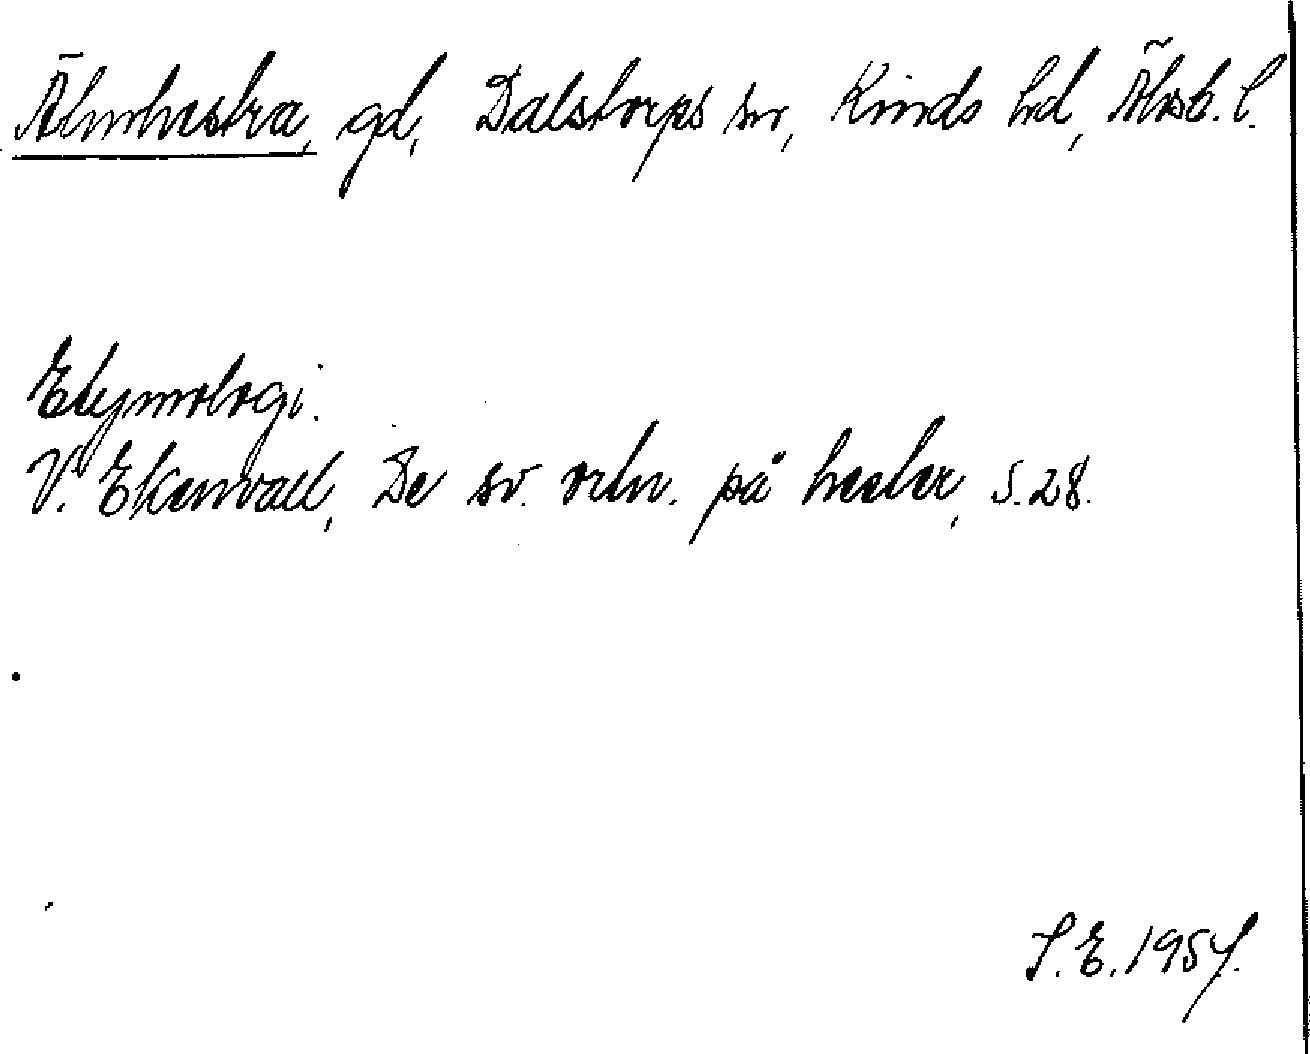 Älmhestra, gd, Dalstorps sn, Kinds hd, Älvsb. l.
Etymologi.
V. Ekenvall, De sv. ortn. på hester, s. 28.
S. E. 1957.